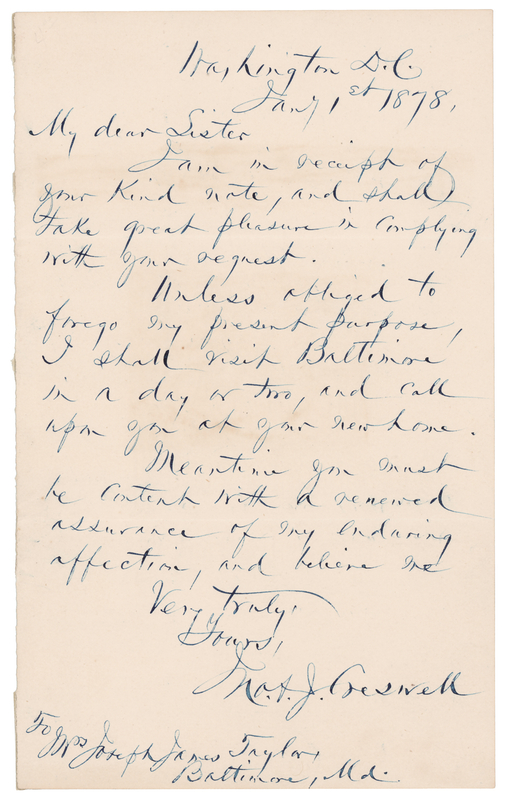 Washington D.C.
Jany 1st 1878.
My dear Sister
I am in receipt of
your kind note, and shall
take great pleasure in complying
with your request.
Unless obliged to
forego my present purpose,
I shall visit Baltimore
in a day or two, and call
upon you at your new home.
Meantime you must
be content with a renewed
assurance of my enduring
affection, and believe me
Very truly,
Yours,
Jno. A. J. Creswell
To
Mrs Joseph James Taylor,
Baltimore, Md.